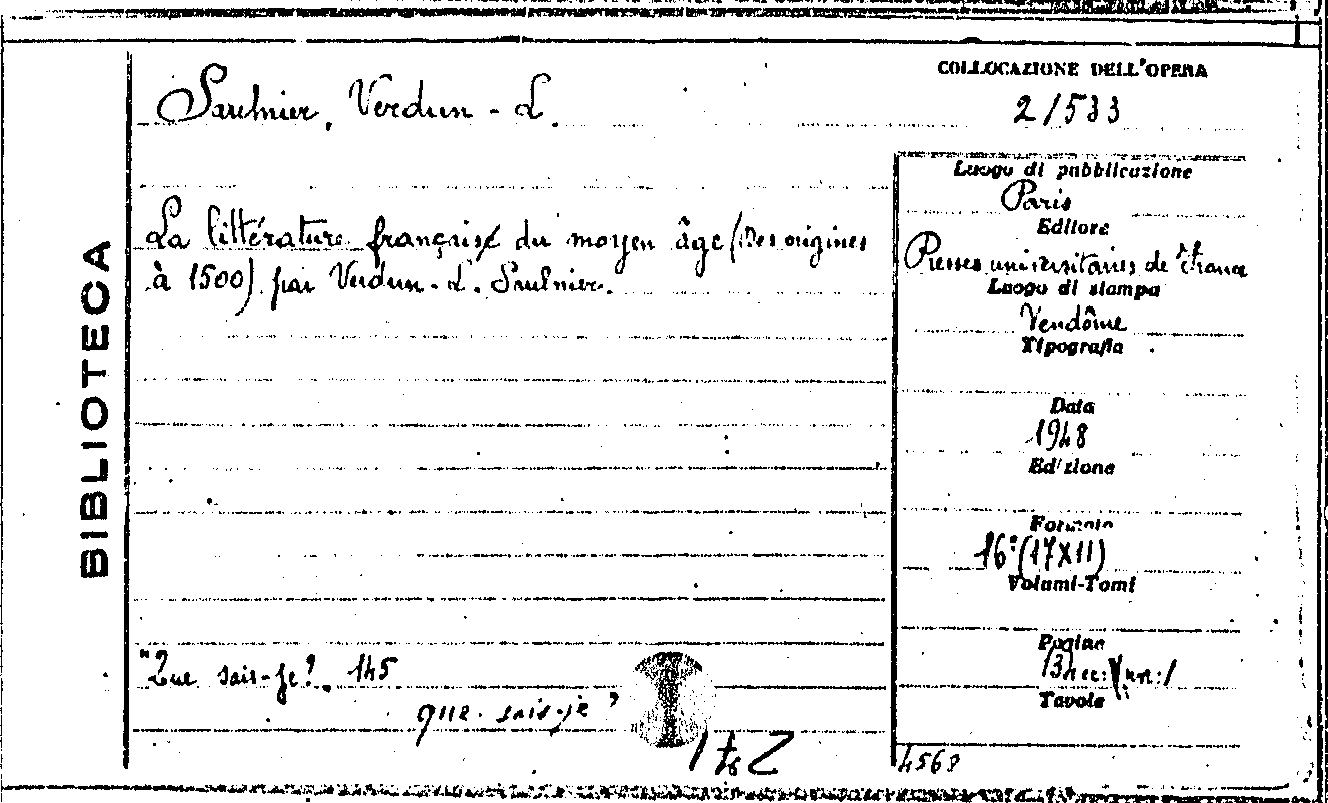 COLLOCAZIONE DELL'OPERA
2/533
Saulnier, Verdun-L.
La littérature française du moyen âge (Des origines
à 1500) par Verdun-L. Saulnier.
BIBLIOTECA
Luogo di pubblicazione
Paris
Editore
Presses universitaires de France
Luogo di stampa
Vendôme
Tipografia
Data
1948
Edizione
Formato
16°(17X11)
Volumi-Tomi
Pagine
Tavole
4568
"Que sais-je?. 145
que-sais-je?